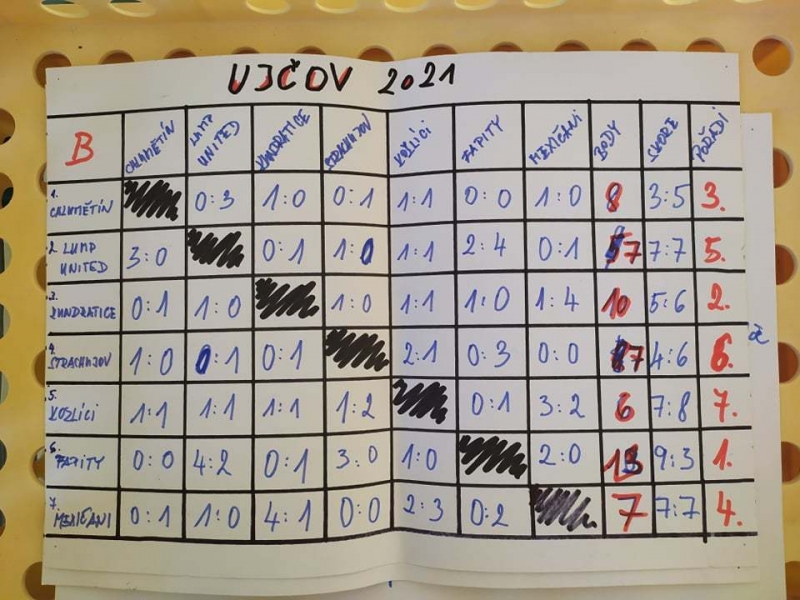 UJČOV 2021
B CALAMETÍN LAMP UNITED KUNDRATICE STRACHUJOV KOZLÍCI FAPITY MEXIČANI BODY SKÓRE POŘADÍ
1. CALAMĚTÍN 0:3 1:0 0:1 1:1 0:0 1:0 8 3:5 3.
2. LUMP UNITED 3:0 0:1 1:0 1:1 2:4 0:1 7 7:7 5.
3. KUNDRATICE 0:1 1:0 1:0 1:1 1:0 1:4 10 5:6 2.
4. STRACHUJOV 1:0 0:1 0:1 2:1 0:3 0:0 7 4:6 6.
5. KOZLÍCI 1:1 1:1 1:1 1:2 0:1 3:2 6 7:8 7.
6. FAPITY 0:0 4:2 0:1 3:0 1:0 2:0 13 9:3 1.
7. MEXIČANI 0:1 1:0 4:1 0:0 2:3 0:2 7 7:7 4.